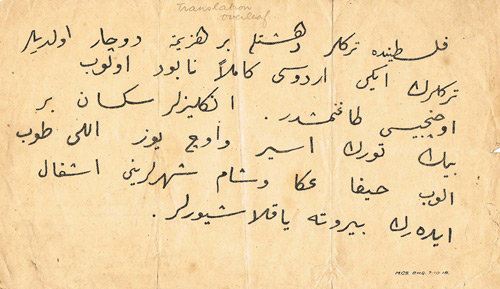 Translation
overleaf
فلسطینده ترکلر دهشتلی بر هزیمته دوچار اولدیلر
ترکلرك ایکی اردوسی کاملاً نابود اولوب
اوچنجیسی انکلیزلر سکسان بر
بیك تورك اسیر واوچ یوز اللی طوب
الوب حیفا عکا وشام شهرلرینی اشغال
ایده رك بیروته یاقلاشیورلر.
7-10-18.